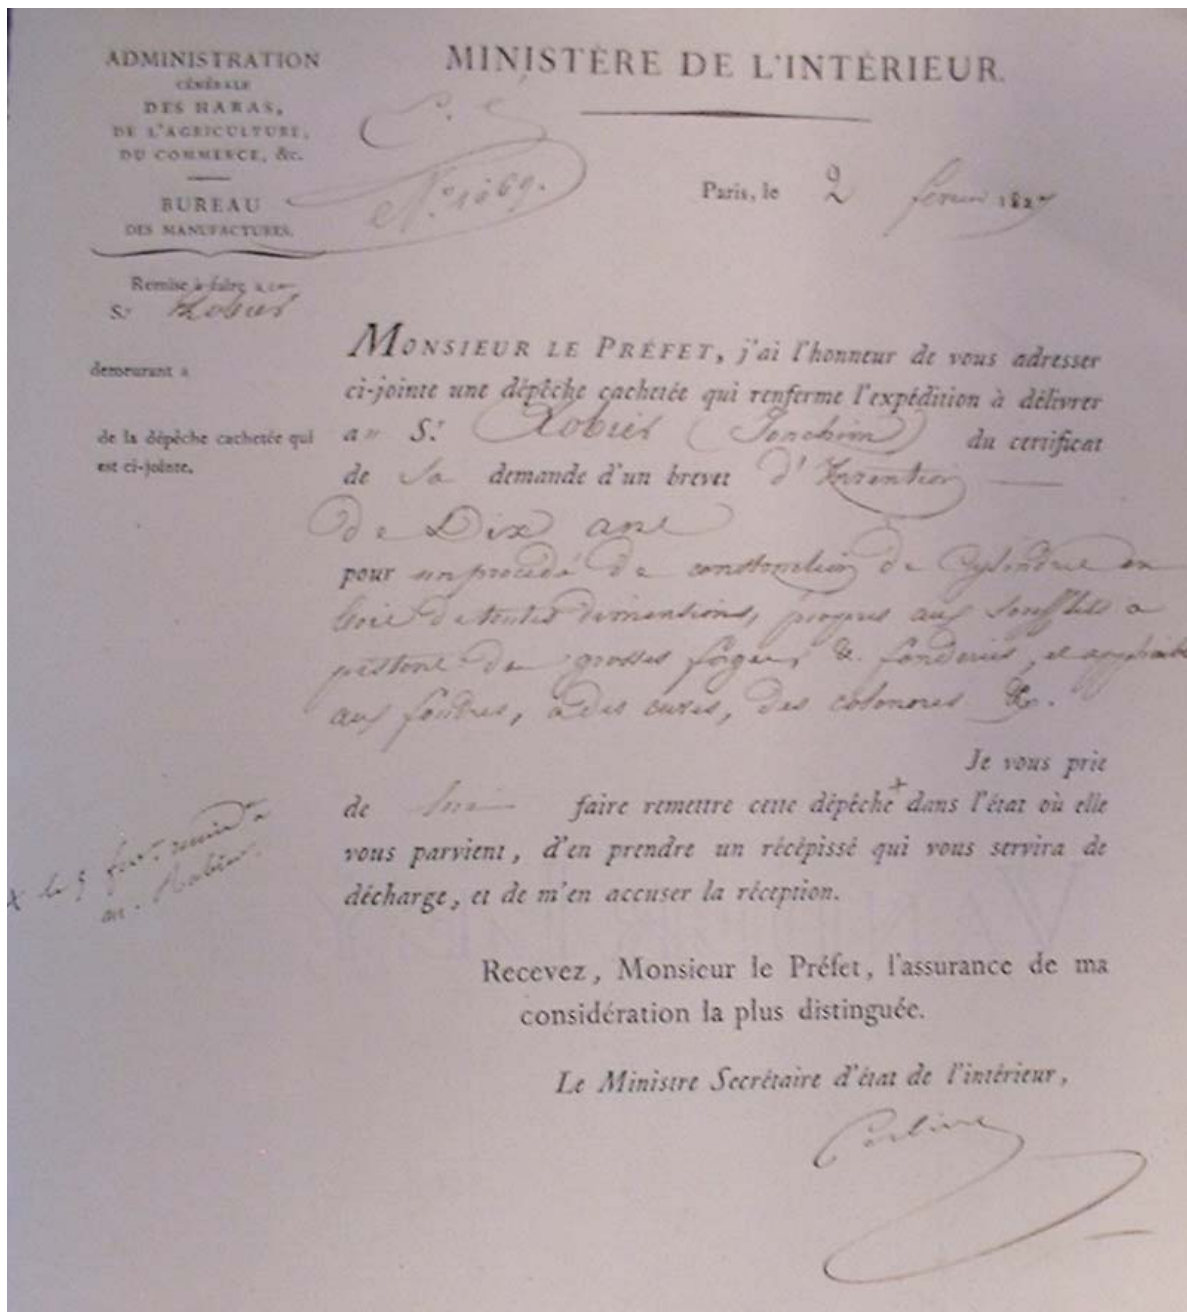 ADMINISTRATION
GÉNÉRALE
DES HARAS,
DE L'AGRICULTURE,
DU COMMERCE, &c.
BUREAU
DES MANUFACTURES.
MINISTÈRE DE L'INTÉRIEUR.
N.º 1069.
Paris, le 2 février 1827
Remise à faire a
S.r
demeurant a
de la dépêche cachetée qui
est ci-jointe.
MONSIEUR LE PRÉFET, j'ai l'honneur de vous adresser
ci-jointe une dépêche cachetée qui renferme l'expédition à délivrer
au S.r (Joachim) du certificat
de sa demande d'un brevet d'Invention
de Dix ans
pour un procédé de construction de Cylindres en
bois de toutes dimensions, propres aux soufflets a
pistons de grosses forges & fonderies, et applicable
aux foudres, a des cuves, des colonnes &c.
Je vous prie
de lui faire remettre cette dépêche + dans l'état où elle
vous parvient, d'en prendre un récépissé qui vous servira de
décharge, et de m'en accuser la réception.
x le 5 remis a
Recevez, Monsieur le Préfet, l'assurance de ma
considération la plus distinguée.
Le Ministre Secrétaire d'état de l'intérieur,
Corbière